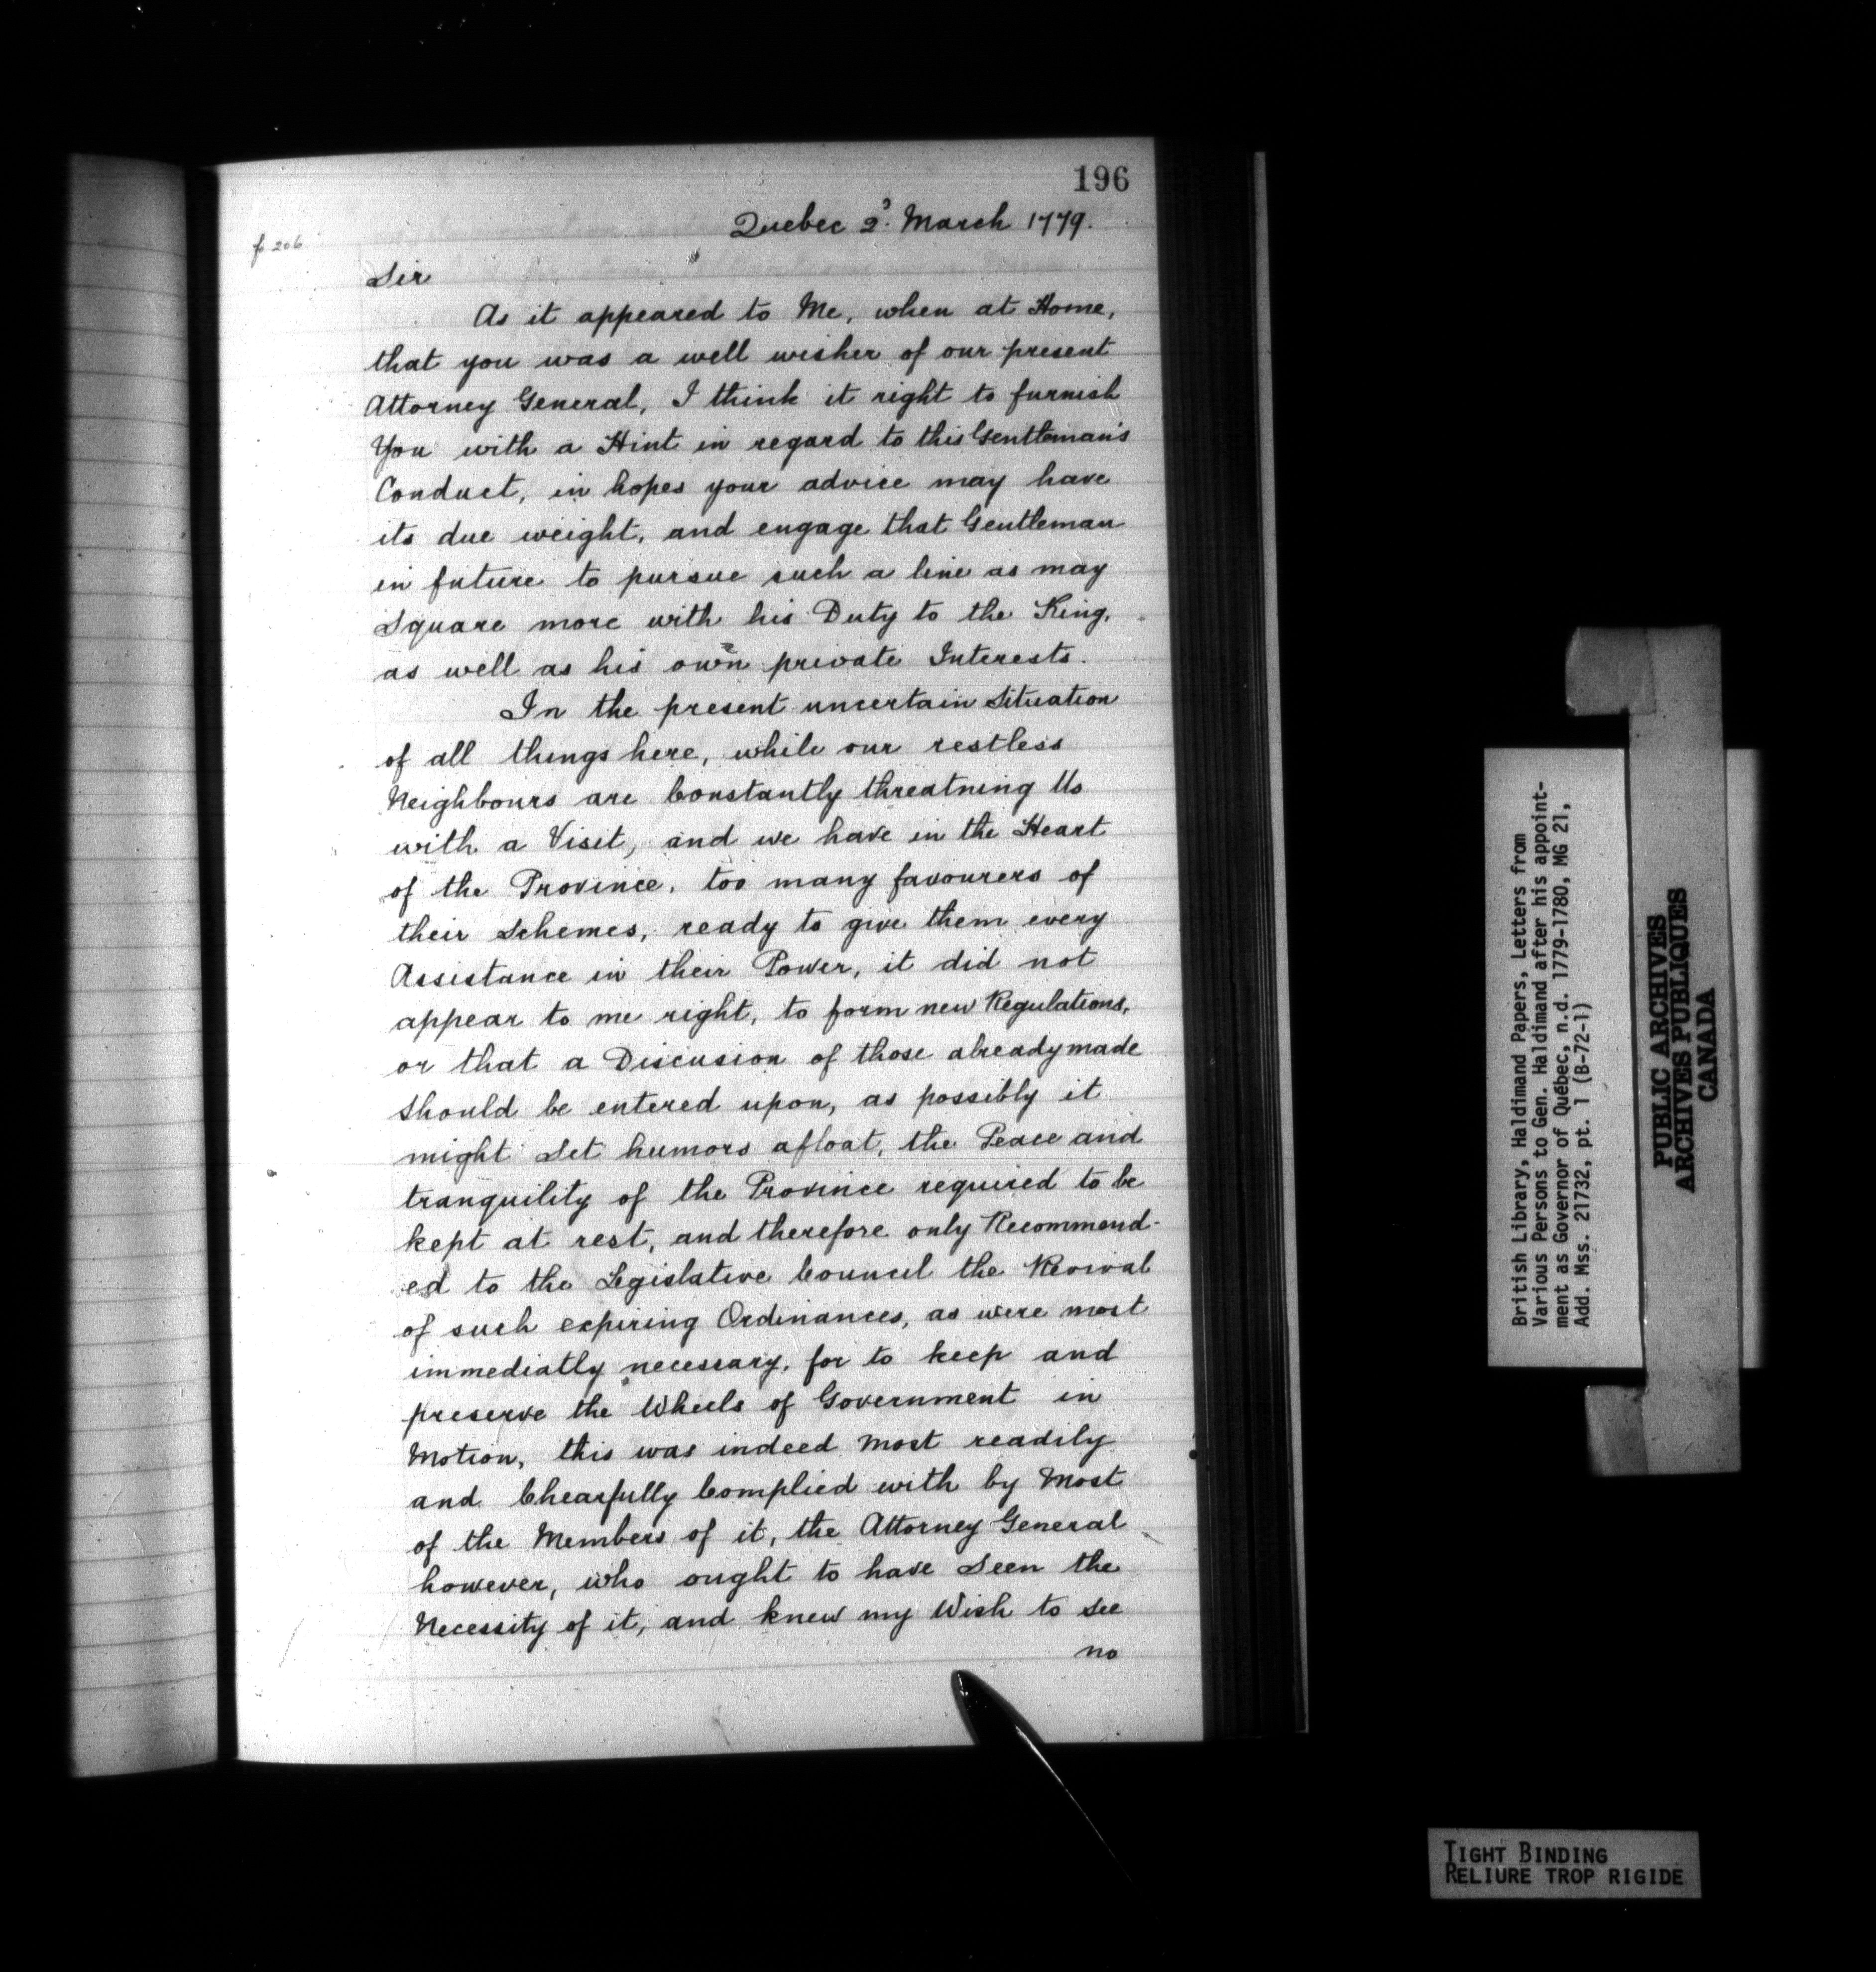 196
Quebec 2d. March 1779.
fo 206
Sir
As it appeared to Me, when at Home,
that you was a well wisher of our present
Attorney General, I think it right to furnish
You with a Hint in regard to this Gentleman's
Conduct, in hopes your advice may have
its due weight, and engage that Gentleman
in future to pursue such a line as may
Square more with his Duty to the King,
as well as his own private Interests.
In the present uncertain Situation
of all things here, while our restless
Neighbours are Constantly threatning Us
with a Visit, and we have in the Heart
of the Province, too many favourers of
their Schemes, ready to give them every
Assistance in their Power, it did not
appear to me right, to form new Regulations,
or that a Discusion of those already made
should be entered upon, as possibly it
might Set humors afloat, the Peace and
tranquility of the Province required to be
kept at rest, and therefore only Recommend-
ed to the Legislative Council the Revival
of such expiring Ordinances, as were most
immediatly necessary, for to keep and
preserve the Wheels of Government in
Motion, this was indeed most readily
and Chearfully Complied with by Most
of the Members of it, the Attorney General
however, who ought to have Seen the
Necessity of it, and knew my Wish to see
no
British Library, Haldimand Papers, Letters from
Various Persons to Gen. Haldimand after his appoint-
ment as Governor of Québec, n.d. 1779-1780, MG 21,
Add. Mss. 21732, pt. 1 (B-72-1)
PUBLIC ARCHIVES
ARCHIVES PUBLIQUES
CANADA
TIGHT BINDING
RELIURE TROP RIGIDE